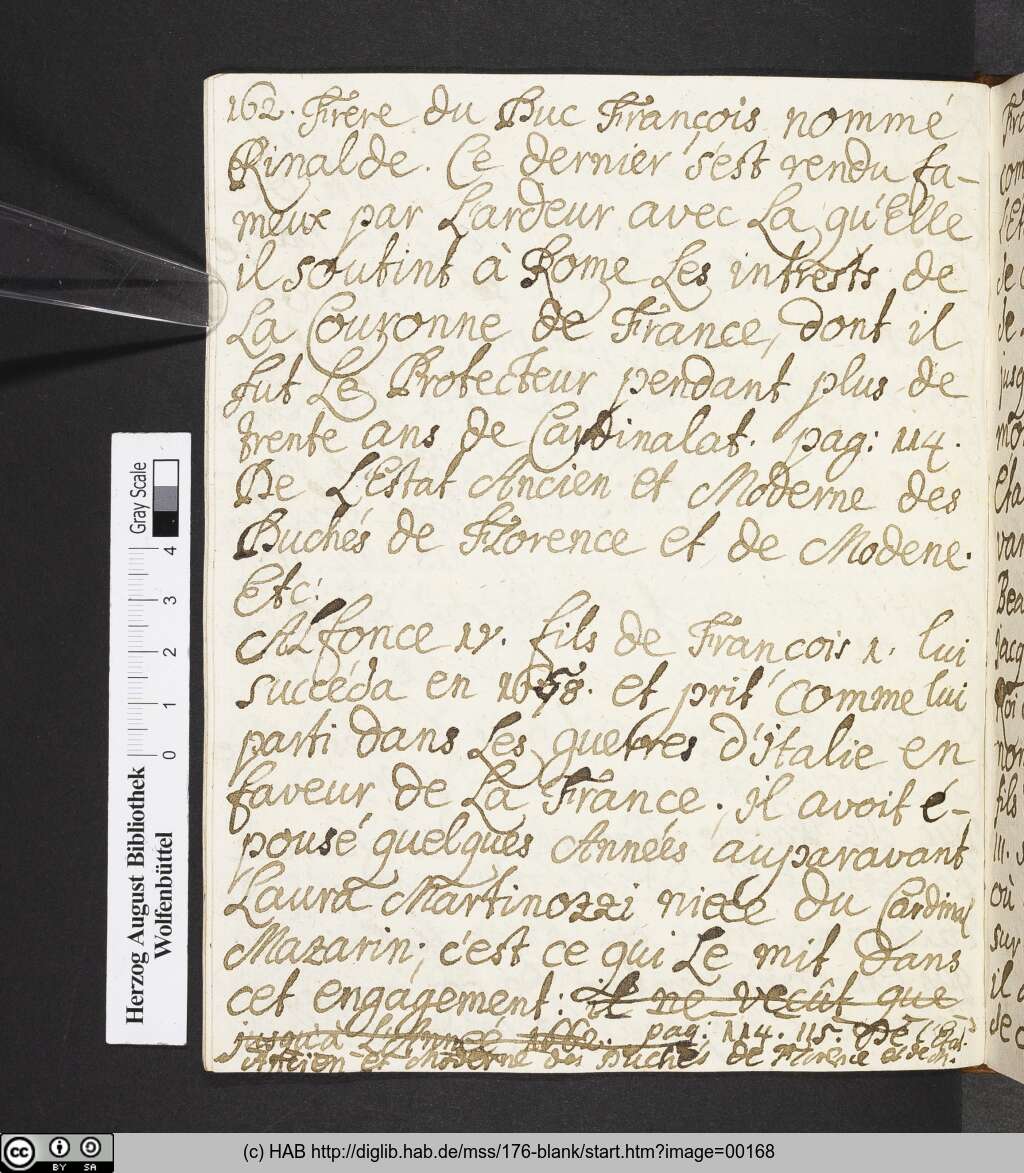 162. Frere du Duc François nommé
Rinalde. Ce dernier s'est rendu fa-
meux par L'ardeur avec La qu'Elle
il soutint à Rome Les intrests de
La Couronne de France, dont il
fut Le Protecteur pendant plus de
trente ans de Cardinalat. pag: 114.
De L'Estat Ancien et Moderne des
Duchés de Florence et de Modene.
Etc:
Alfonce IV. fils de François I. lui
succéda en 1658. et prit comme lui
parti dans Les guerres d'Italie en
faveur de La France. il avoit é-
pousé quelques Années auparavant
Laura Martinozzi niece du Cardinal
Mazarin; c'est ce qui Le mit dans
cet engagement: il ne vecût que
jusqu'à L'Année 1662. pag: 114. 115. De l'Estat
Ancien et Moderne des Duchés de Florence et de M.
Fr
com
de
jusq
mo
Eta
van
Bea
jacq
Roi
non
fils
III.
où
sur
il
de
Gray Scale
4
3
2
1
0
Herzog August Bibliothek
Wolfenbüttel
cc BY SA
(c) HAB http://diglib.hab.de/mss/176-blank/start.htm?image=00168